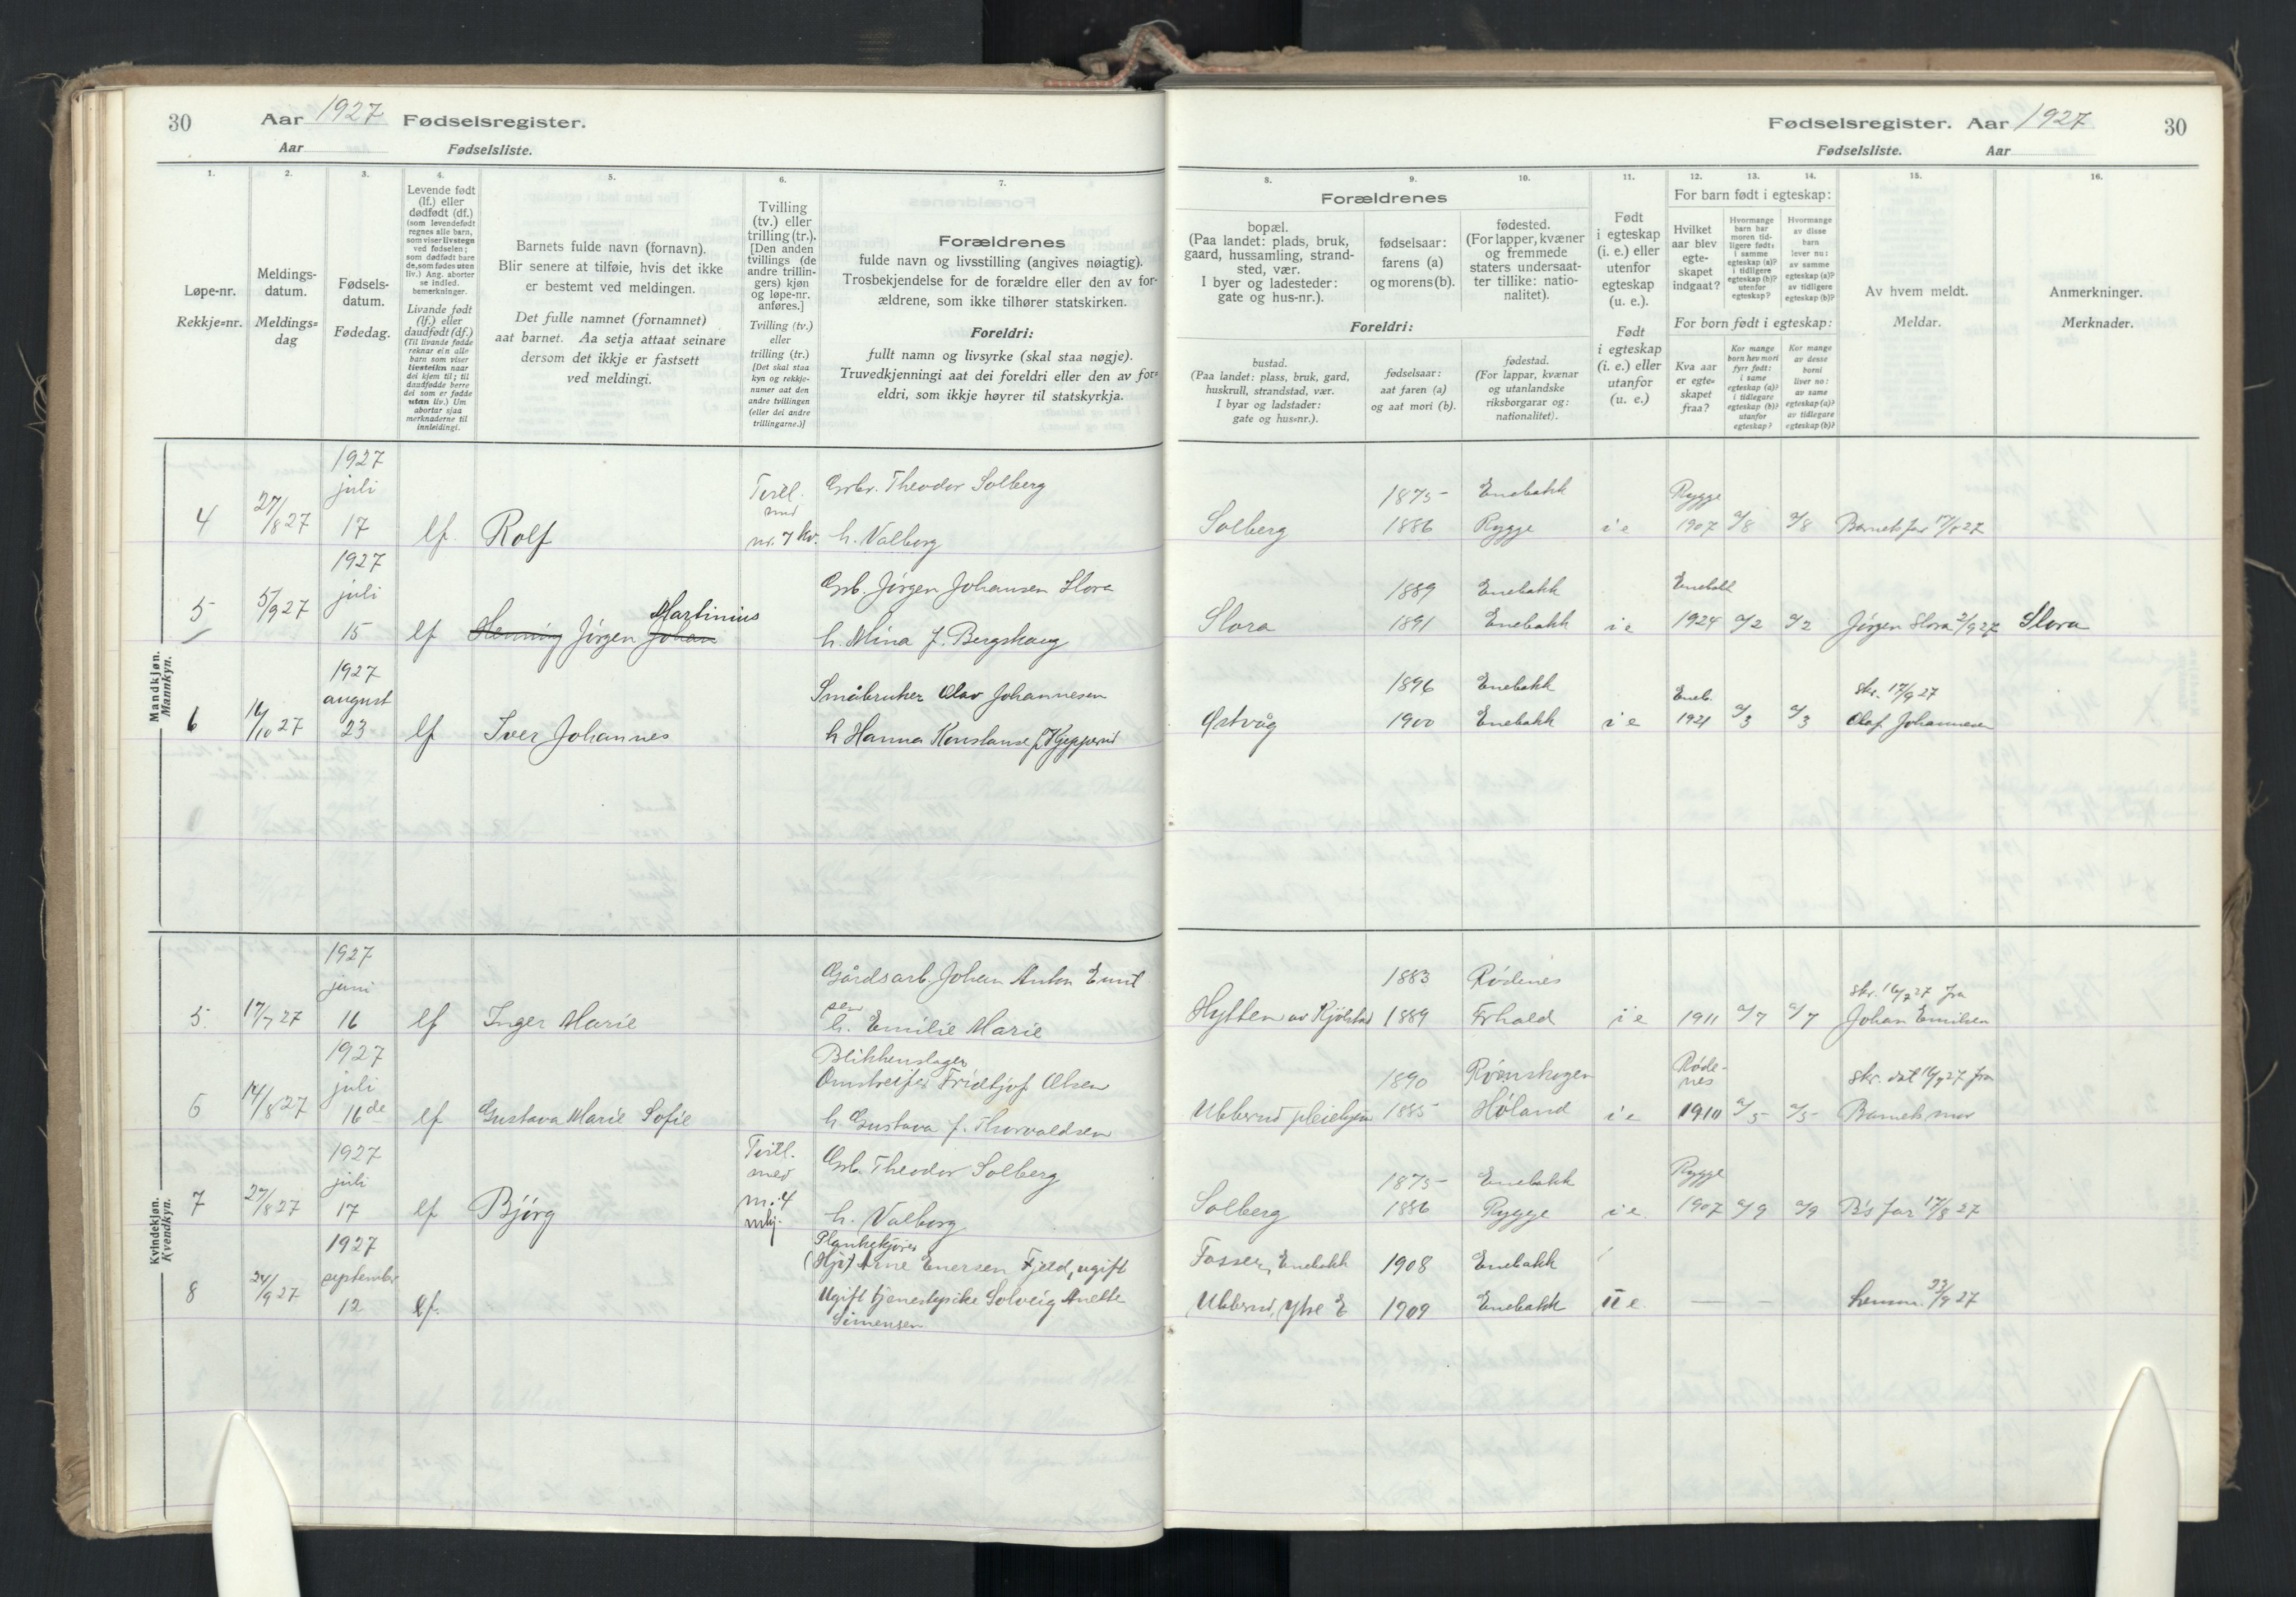 30 Aar 1927 Fødselsregister.
Aar Fødselsliste.
1.
Løpe-nr.
Rekkje-nr.
2.
Meldings-
datum.
Meldings-
dag
3.
Fødsels-
datum.
Fødedag.
4.
Levende født
(lf.) eller
dødfødt (df.)
(som levendefødt
regnes alle barn,
som viser livstegn
ved fødselen;
som dødfødt bare
de, som fødes uten
liv.) Ang. aborter
se indled.
bemerkninger.
Livande født
(lf.) eller
daudfødt (df.)
(Til livande fødde
reknar ein alle
barn som viser
livsteikn naar
dei kjem til; til
daudfødde berre
dei som er fødde
utan liv.) Um
abortar sjaa
merknaderne til
innleidingi.
5.
Barnets fulde navn (fornavn).
Blir senere at tilføie, hvis det ikke
er bestemt ved meldingen.
Det fulle namnet (fornamnet)
aat barnet. Aa setja attaat seinare
dersom det ikkje er fastsett
ved meldingi.
6.
Tvilling
(tv.) eller
trilling (tr.).
[Den anden
tvillings (de
andre trillin-
gers) kjøn
og løpe-nr.
anføres.]
Tvilling (tv.)
eller
trilling (tr.)
[Det skal staa
kyn og rekkje-
numer aat den
andre tvillingen
(eller dei andre
trillingarne.)]
7.
Forældrenes
fulde navn og livsstilling (angives nøiagtig).
Trosbekjendelse for de forældre eller den av for-
ældrene, som ikke tilhører statskirken.
Foreldri:
fullt namn og livsyrke (skal staa nøgje).
Truvedkjenningi aat dei foreldri eller den av for-
eldri, som ikkje høyrer til statskyrkja.
Mandkjøn.
Mannkyn.
4 27/8 27 1927 juli 17 lf. Rolf Tvill. med nr. 7 kv. Grbr. Theodor Solberg
h. Valborg
5 5/9 27 1927 juli 15 lf Henning Jörgen Johan Martinius Grb. Jörgen Johansen Slora
h. Mina f. Bergskaug
6 16/10 27 1927 august 23 lf Iver Johannes Småbruker Olav Johannesen
h Hanna Konstanse f. Kjepperud
Kvindekjøn.
Kvendkyn.
5. 17/7 27 1927 juni 16 lf Inger Marie Gårdsarb. Johan Anton Emil
sen
h. Emilie Marie
6 14/8 27 1927 juli 16de lf Gustava Marie Sofie Blikkenslager
Omstreifer Fridtjof Olsen
h Gustava f. Thorvaldsen
7 27/8 27 1927 juli 17 lf Björg Tvill. med nr. 4 mkj. Grb. Theodor Solberg
h. Valborg
8 24/9 27 1927 september 12 lf. Plankekjörer
Arne Enersen Fjeld, ugift
Ugift tjenestepike Solveig Anette
Simensen
Fødselsregister. Aar 1927 30
Fødselsliste. Aar
8.
Forældrenes
bopæl.
(Paa landet: plads, bruk,
gaard, hussamling, strand-
sted, vær.
I byer og ladesteder:
gate og hus-nr.).
Foreldri:
bustad.
(Paa landet: plass, bruk, gard,
huskrull, strandstad, vær.
I byar og ladstader:
gate og hus-nr.).
9.
fødselsaar:
farens (a)
og morens (b).
fødselsaar:
aat faren (a)
og aat mori (b).
10.
fødested.
(For lapper, kvæner
og fremmede
staters undersaat-
ter tillike: natio-
nalitet).
fødestad.
(For lappar, kvænar
og utanlandske
riksborgarar og:
nationalitet).
11.
Født
i egteskap
(i. e.) eller
utenfor
egteskap
(u. e.).
Født
i egteskap
(i. e.) eller
utanfor
(u. e.)
12. 13. 14.
For barn født i egteskap:
Hvilket
aar blev
egte-
skapet
indgaat?
Hvormange
barn har
moren tid-
ligere født:
i samme
egteskap (a)?
i tidligere
egteskap (b)?
utenfor
egteskap?
Hvormange
av disse
barn
lever nu:
av samme
egteskap (a)?
av tidligere
egteskap (b)?
For born født i egteskap:
Kva aar
er egte-
skapet
fraa?
Kor mange
born hev mori
fyrr født:
i same
egteskap (a)?
i tidlegare
egteskap (b)?
utanfor
egteskap?
Kor mange
av desse
borni
liver no:
av same
egteskap (a)?
av tidlegare
egteskap (b)?
15.
Av hvem meldt.
Meldar.
16.
Anmerkninger.
Merknader.
Solberg 1875 Enebakk
1886 Rygge i e Rygge 1907 a/8 a/8 Barnets far 17/8 27
Slora 1889 Enebakk
1891 Enebakk i e Enebakk 1924 a/2 a/2 Jörgen Slora 2/9 27 Slora
Østvåg 1896 Enebakk
1900 Enebakk i e Eneb. 1921 a/3 a/3 skr. 17/9 27
Olaf Johannesen
Hytten av Kjölstad 1883 Rödenes
1889 Frhald i e 1911 a/7 a/7 skr. 16/7 27 fra
Johan Emilsen
Ubberud pleiehjem 1890 Römskogen
1885 Höland i e Rødenes 1910 a/5 a/5 skr. dat 16/7 27 fra
Barnets mor
Solberg 1875 Enebakk
1886 Rygge i e. Rygge 1907 a/9 a/9 B's far 17/8 27
Fosser, Enebakk 1908 Enebakk
Ubberud, Ytre E 1909 Enebakk u e. — — 22/9 27